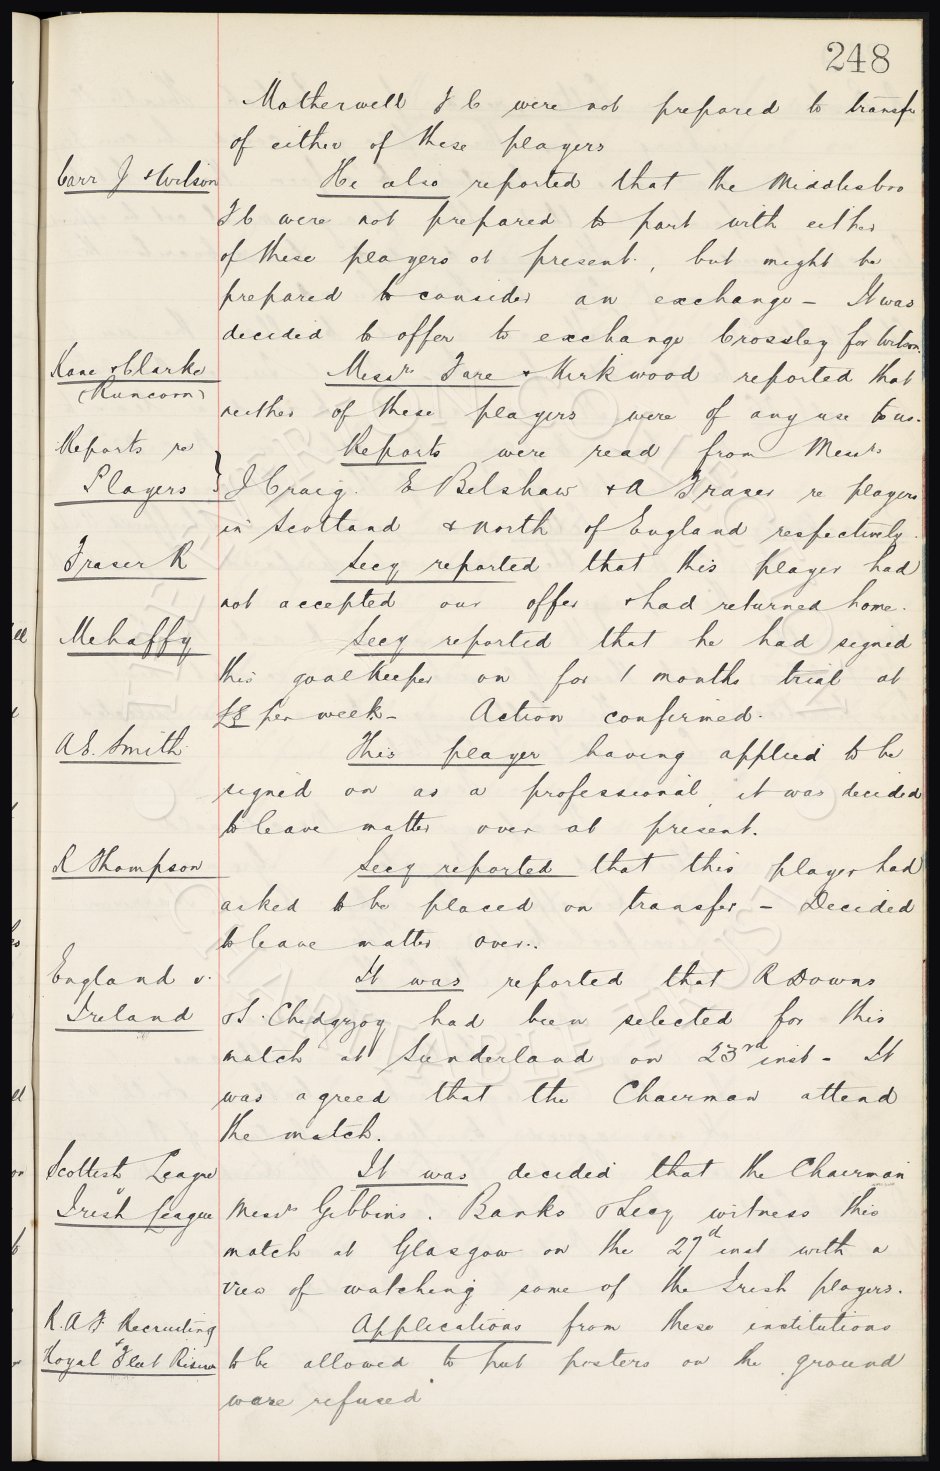 248
Motherwell F C were not prepared to transfer
of either of these players
Carr J & Wilson
He also reported that the Middlesbro
F C were not prepared to part with either
of these players at present, but might be
prepared to consider an exchange - It was
decided to offer to exchange Crossley for Wilson.
Kane & Clarke
(Runcorn)
Messrs Fare & Kirkwood reported that
neither of these players were of any use to us.
Reports re
Players }
Reports were read from Messrs
J Craig. E Belshaw & A Fraser re players
in Scotland & North of England respectively.
Fraser R
Secy reported that this player had
not accepted our offer & had returned home.
Mehaffy
Secy reported that he had signed
this goalkeeper on for 1 months trial at
£8 per week - Action confirmed.
A E. Smith
This player having applied to be
signed on as a professional, it was decided
to leave matter over at present.
R Thompson
Secy reported that this player had
asked to be placed on transfer - Decided
to leave matter over.
England v.
Ireland
It was reported that R Downs
& S. Chedgzoy had been selected for this
match at Sunderland on 23rd inst - It
was agreed that the Chairman attend
the match.
Scottish League
v
Irish League
It was decided that the Chairman
Messrs Gibbins. Banks & Secy witness this
match at Glasgow on the 27d inst with a
view of watching some of the Irish players.
R.A.F Recruiting
&
Royal Fleet
Applications from these institutions
to be allowed to put posters on the ground
were refused